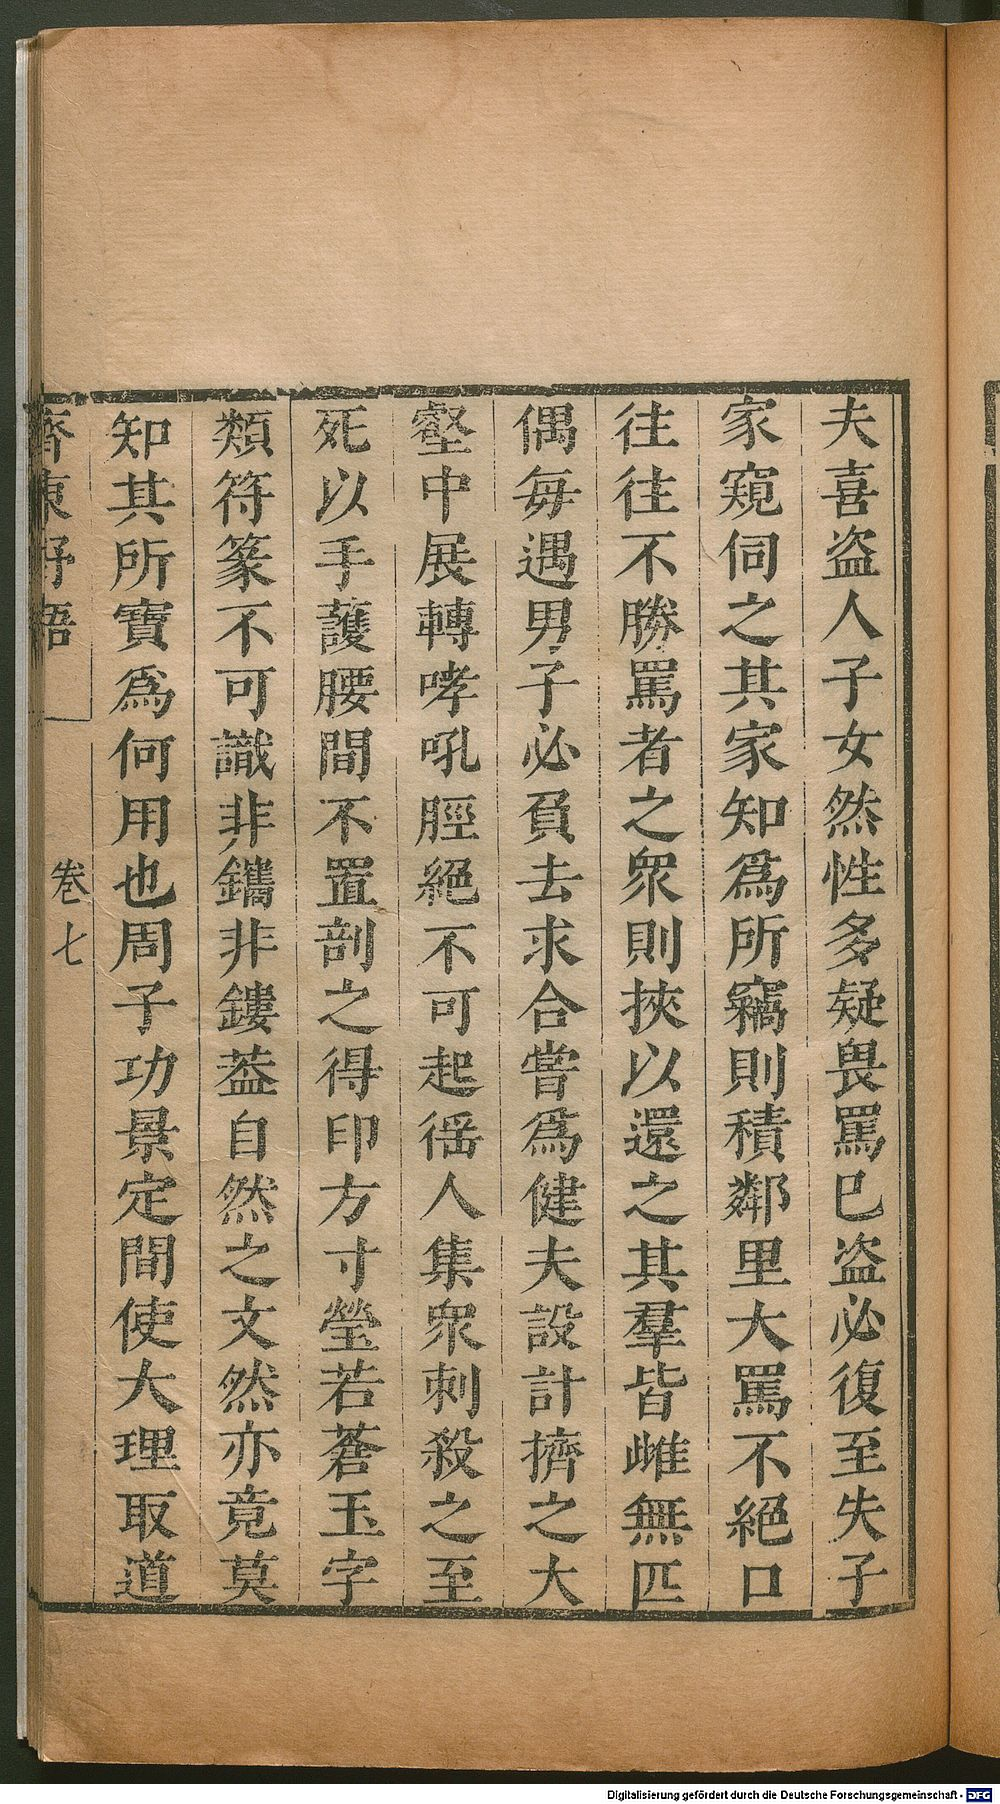 夫喜盗人子女然性多疑畏罵巳盗必復至失子
家窺伺之其家知爲所竊則積鄰里大罵不絕口
往往不勝罵者之衆則挾以還之其羣皆雌無匹
偶每遇男子必負去求合嘗爲健夫設計擠之大
壑中展轉哮吼脛絕不可起徭人集衆刺殺之至
死以手護腰間不置剖之得印方寸瑩若蒼玉字
類符篆不可識非鐫非鏤葢自然之文然亦竟莫
知其所寶爲何用也周子功景定間使大理取道
齊東野語
卷七
Digitalisierung gefördert durch die Deutsche Forschungsgemeinschaft - DFG